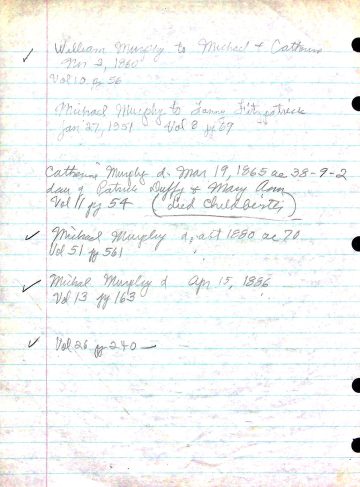 William Murphy to Michael + Catherine
Nov 2, 1860
Vol 10 pg 56
Michael Murphy to Fanny Fitzpatrick
Jan 27, 1951 Vol 8 pg 89
Catherine Murphy d. Mar 19, 1865 ae 38-9-2
dau of Patrick Duffy & Mary Ann
Vol 11 pg 54 (Died Childbirth)
Michael Murphy d. Oct 1880 ae 70
Vol 51 pg 561
Michal Murphy d Apr 15, 1886
Vol 13 pg 163
Vol 26 pg 240 —